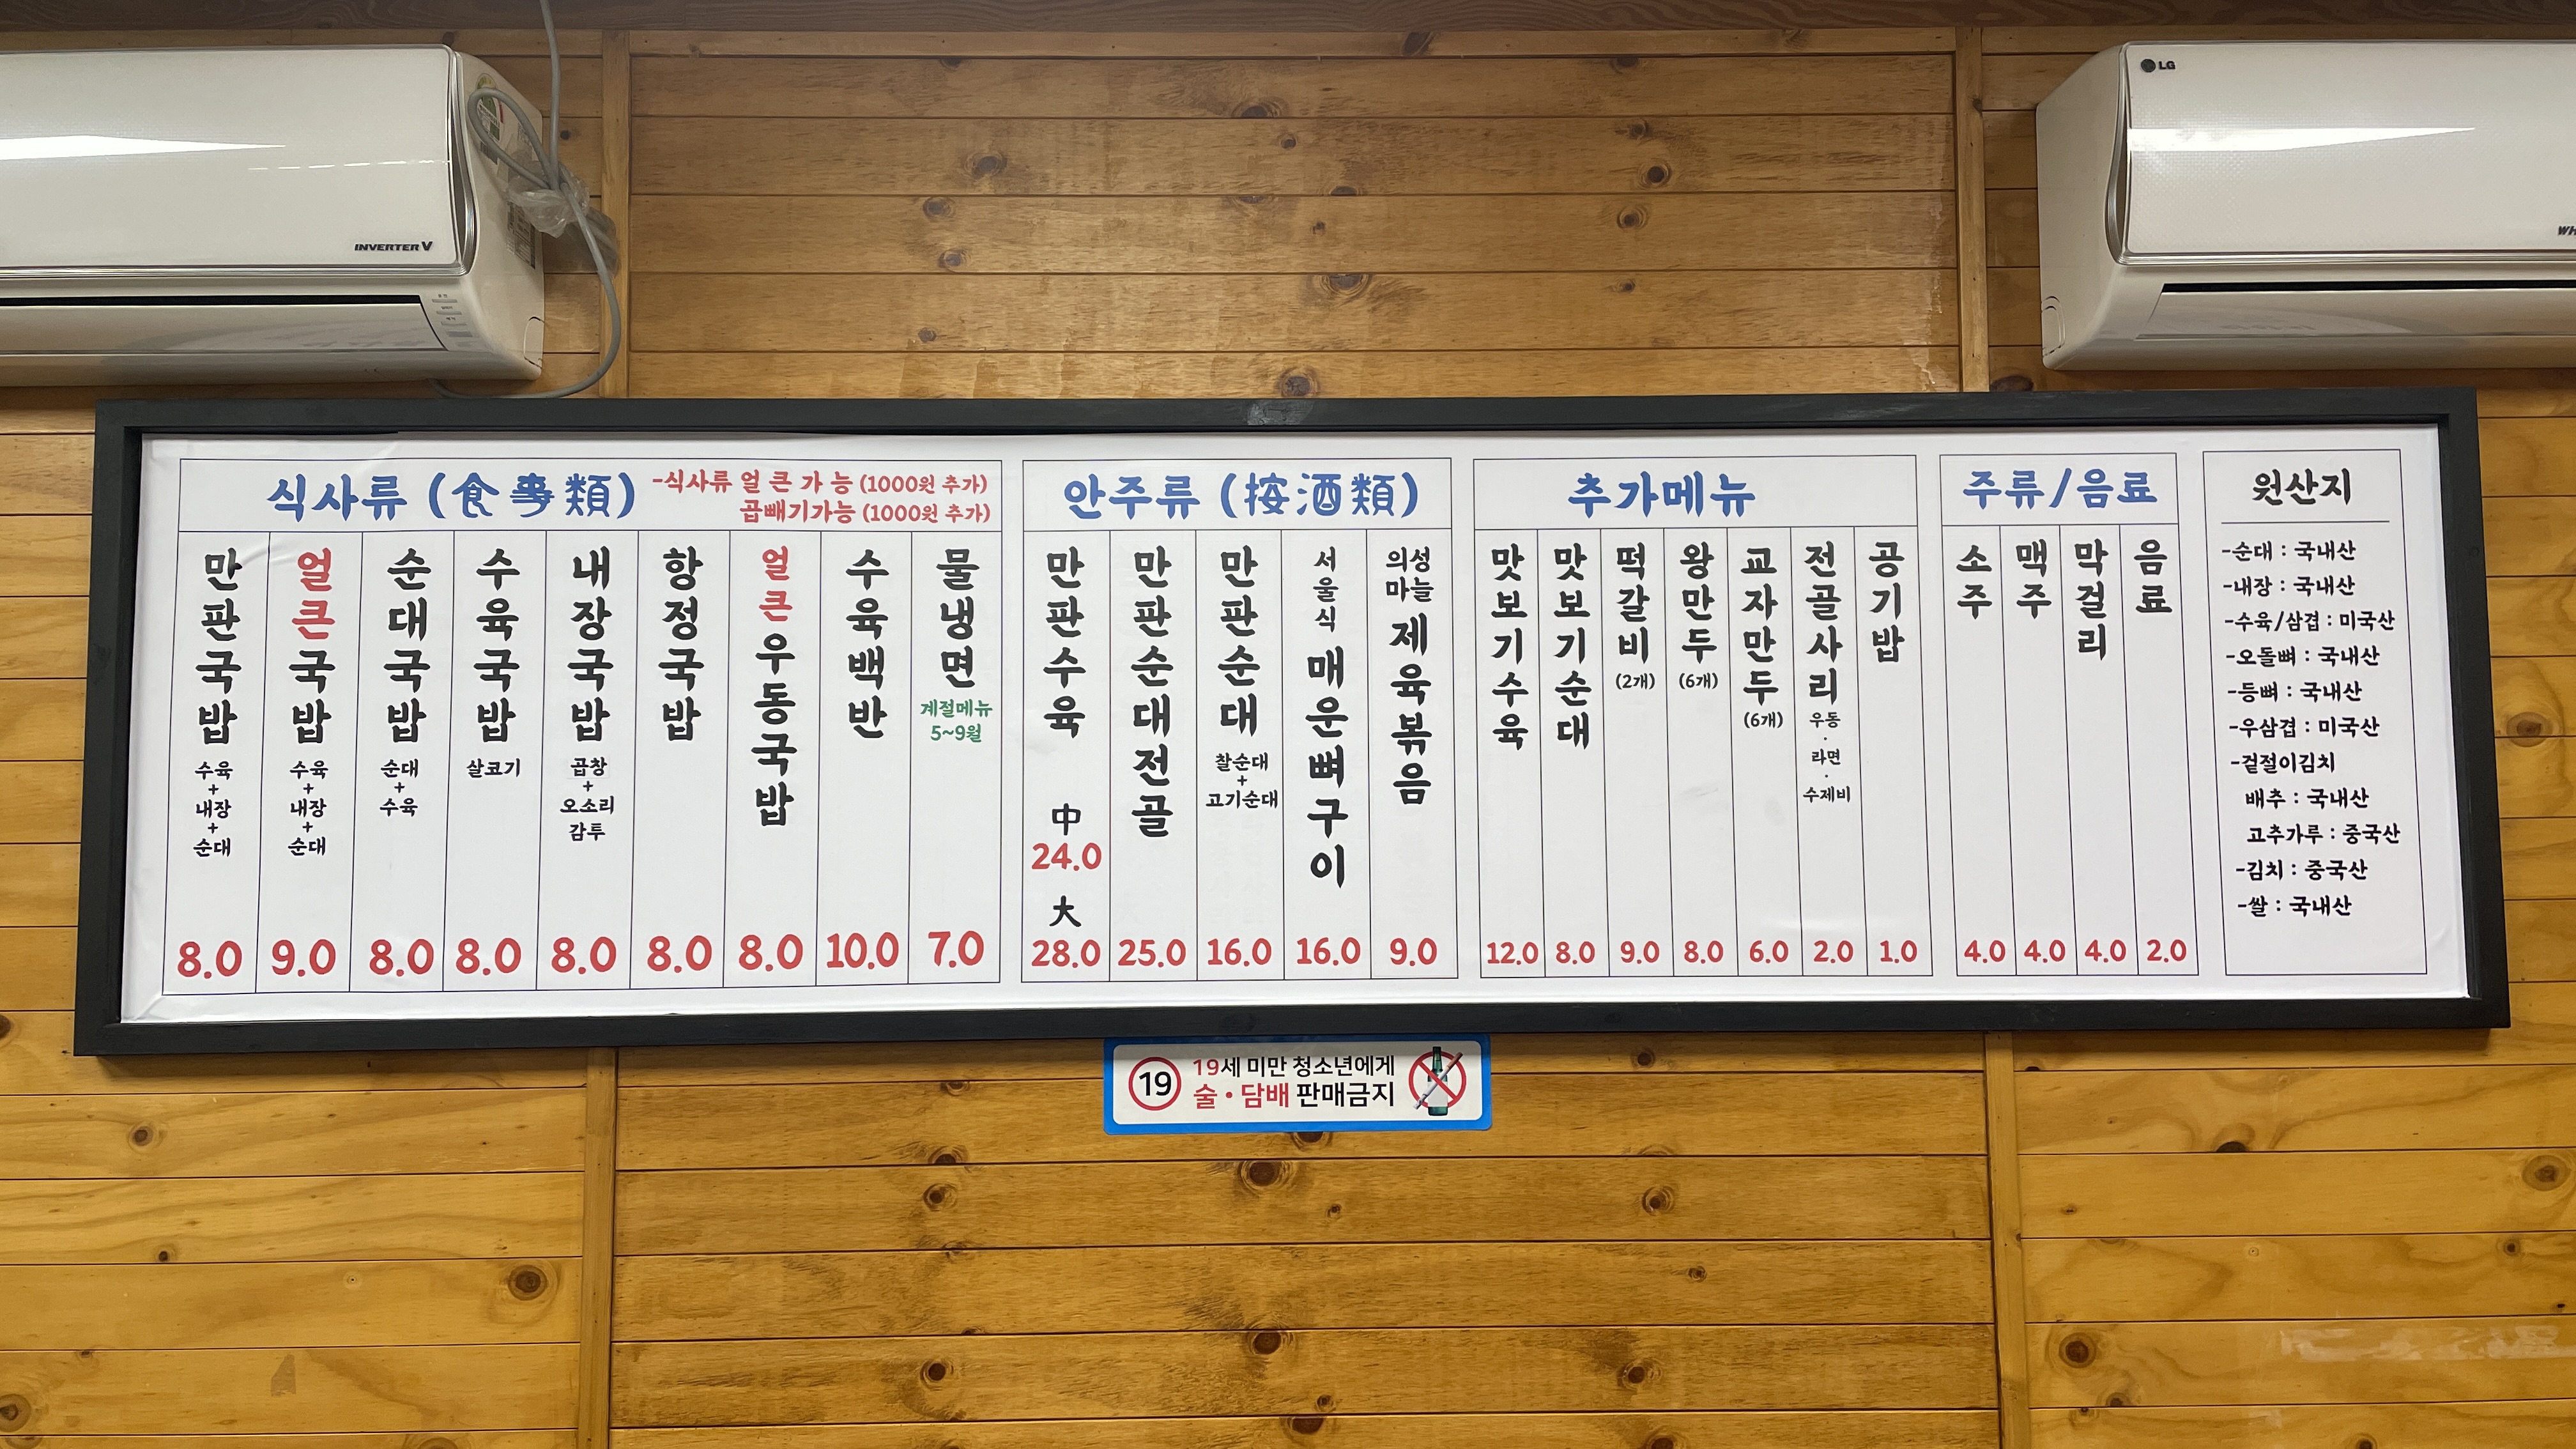 INVERTER V
LG
식사류 (食事類)
-식사류 얼 큰 가 능 (1000원 추가)
곱빼기가능 (1000원 추가)
만판국밥
수육
+
내장
+
순대
8.0
얼큰국밥
수육
+
내장
+
순대
9.0
순대국밥
순대
+
수육
8.0
수육국밥
살코기
8.0
내장국밥
곱창
+
오소리
감투
8.0
항정국밥
8.0
얼큰우동국밥
8.0
수육백반
10.0
물냉면
계절메뉴
5~9월
7.0
안주류 (按酒類)
만판수육
中
24.0
大
28.0
만판순대전골
25.0
만판순대
찰순대
+
고기순대
16.0
서울식 매운뼈구이
16.0
의성
마늘
제육볶음
9.0
추가메뉴
맛보기수육
12.0
맛보기순대
8.0
떡갈비
(2개)
9.0
왕만두
(6개)
8.0
교자만두
(6개)
6.0
전골사리
우동
·
라면
·
수제비
2.0
공기밥
1.0
주류/음료
소주
4.0
맥주
4.0
막걸리
4.0
음료
2.0
원산지
-순대 : 국내산
-내장 : 국내산
-수육/삼겹 : 미국산
-오돌뼈 : 국내산
-등뼈 : 국내산
-우삼겹 : 미국산
-겉절이김치
배추 : 국내산
고추가루 : 중국산
-김치 : 중국산
-쌀 : 국내산
19
19세 미만 청소년에게
술·담배 판매금지